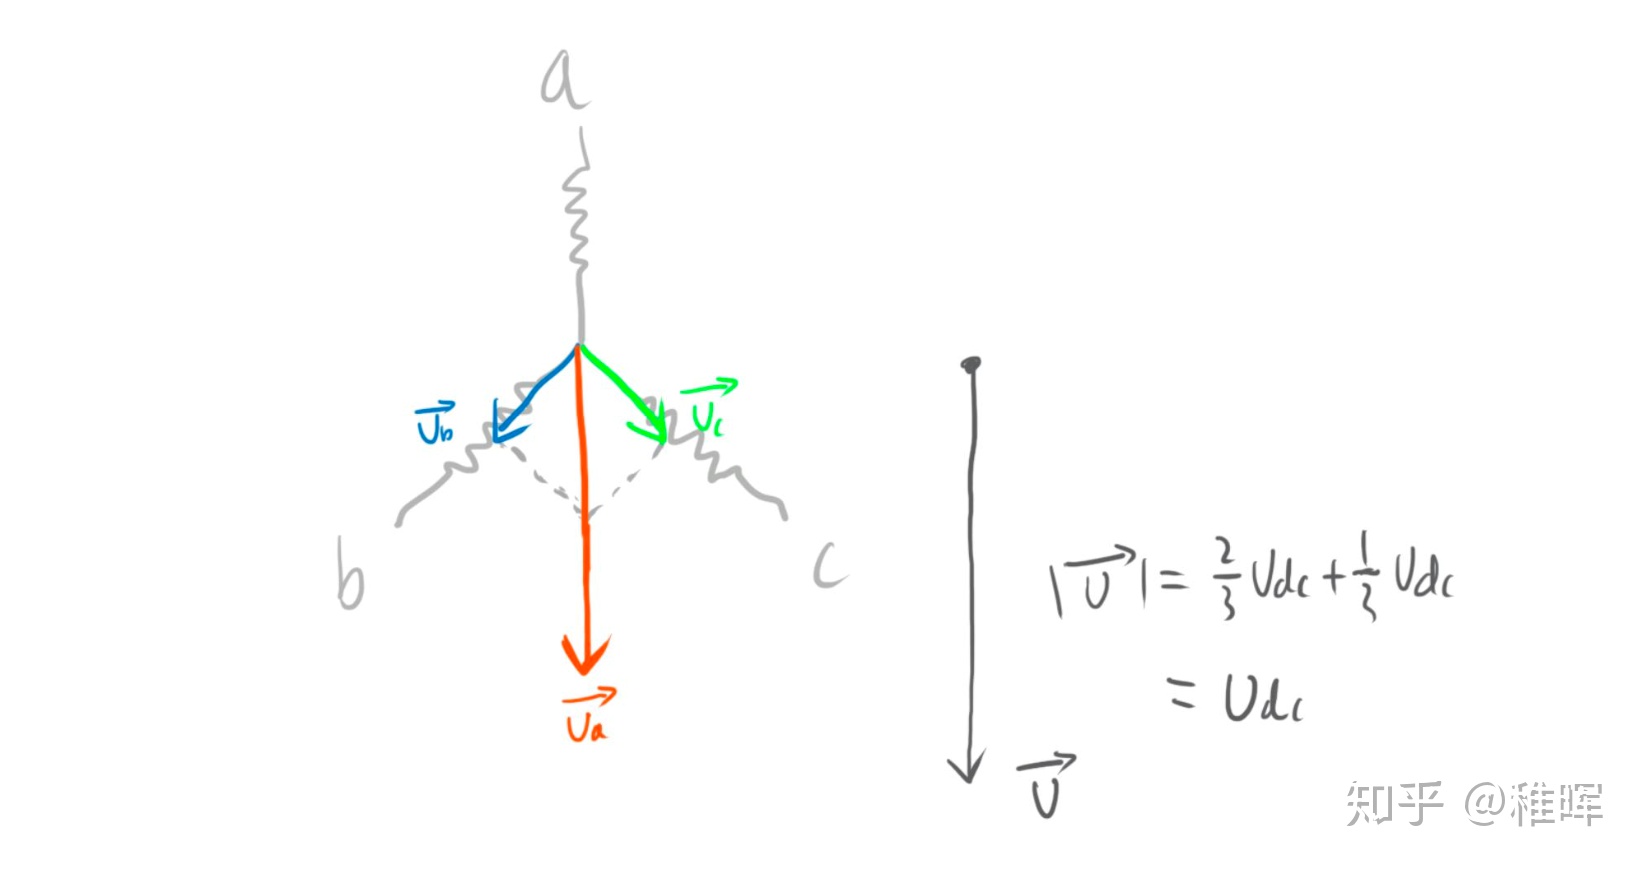 a
U⃗b
U⃗c
b
c
U⃗a
|U⃗| = 2/3 Udc + 1/3 Udc
= Udc
U⃗
知乎 @稚晖